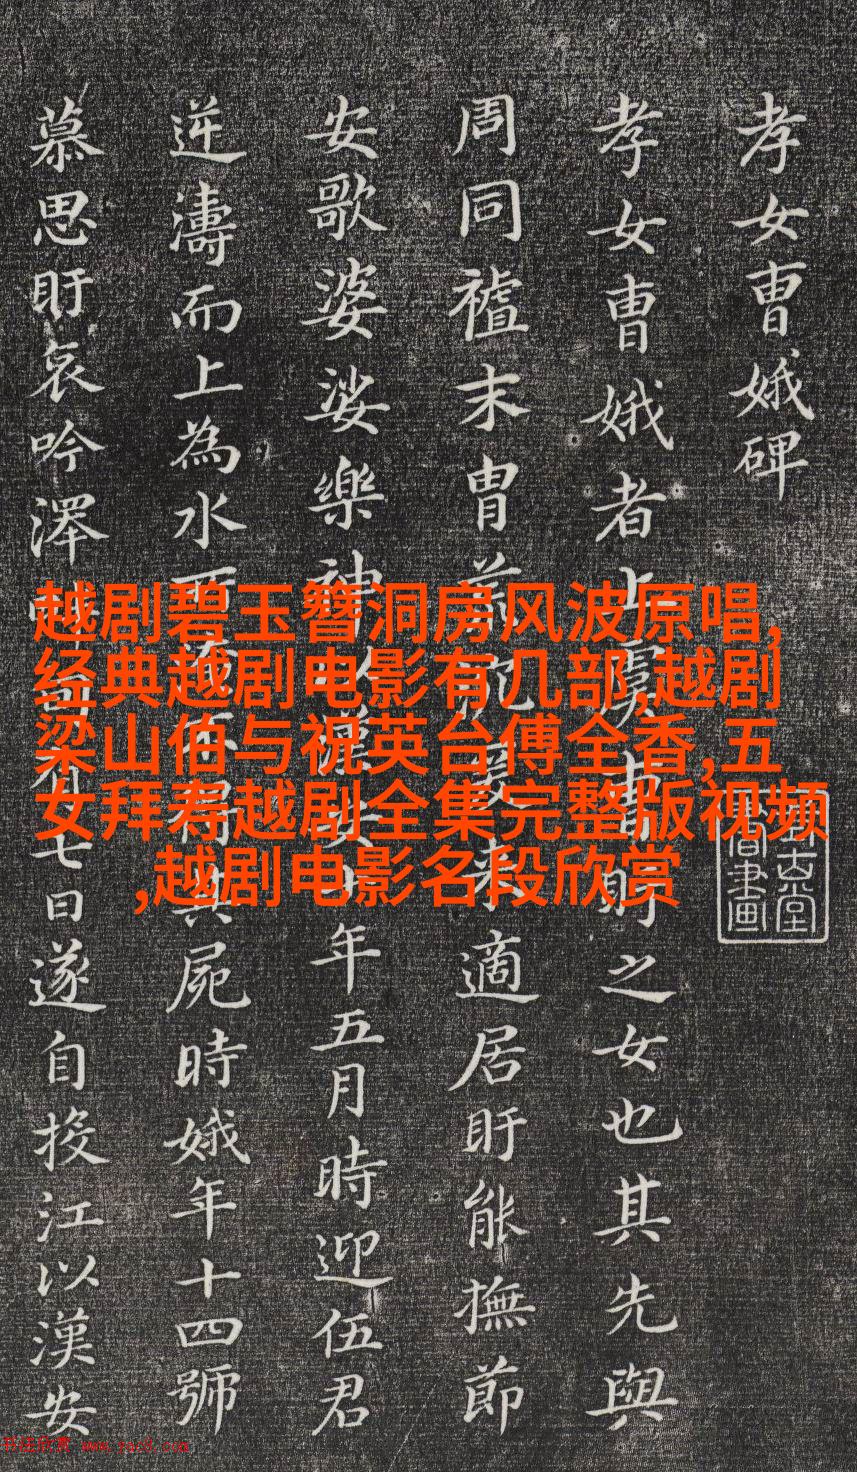 孝女曹娥碑
孝女曹娥者上虞曹盱之女也其先與
周同禮末胄荒沉爰來適居盱能撫節
安歌婆娑樂神以漢安二年五月時迎伍君
逆濤而上為水所淹不得其屍時娥年十四號
慕思盱哀吟澤畔旬有七日遂自投江以漢安
越剧碧玉簪洞房风波原唱,
经典越剧电影有几部,越剧
梁山伯与祝英台傅全香,五
女拜寿越剧全集完整版视频
,越剧电影名段欣赏
古堂
書畫
书法欣赏 www.yac8.com